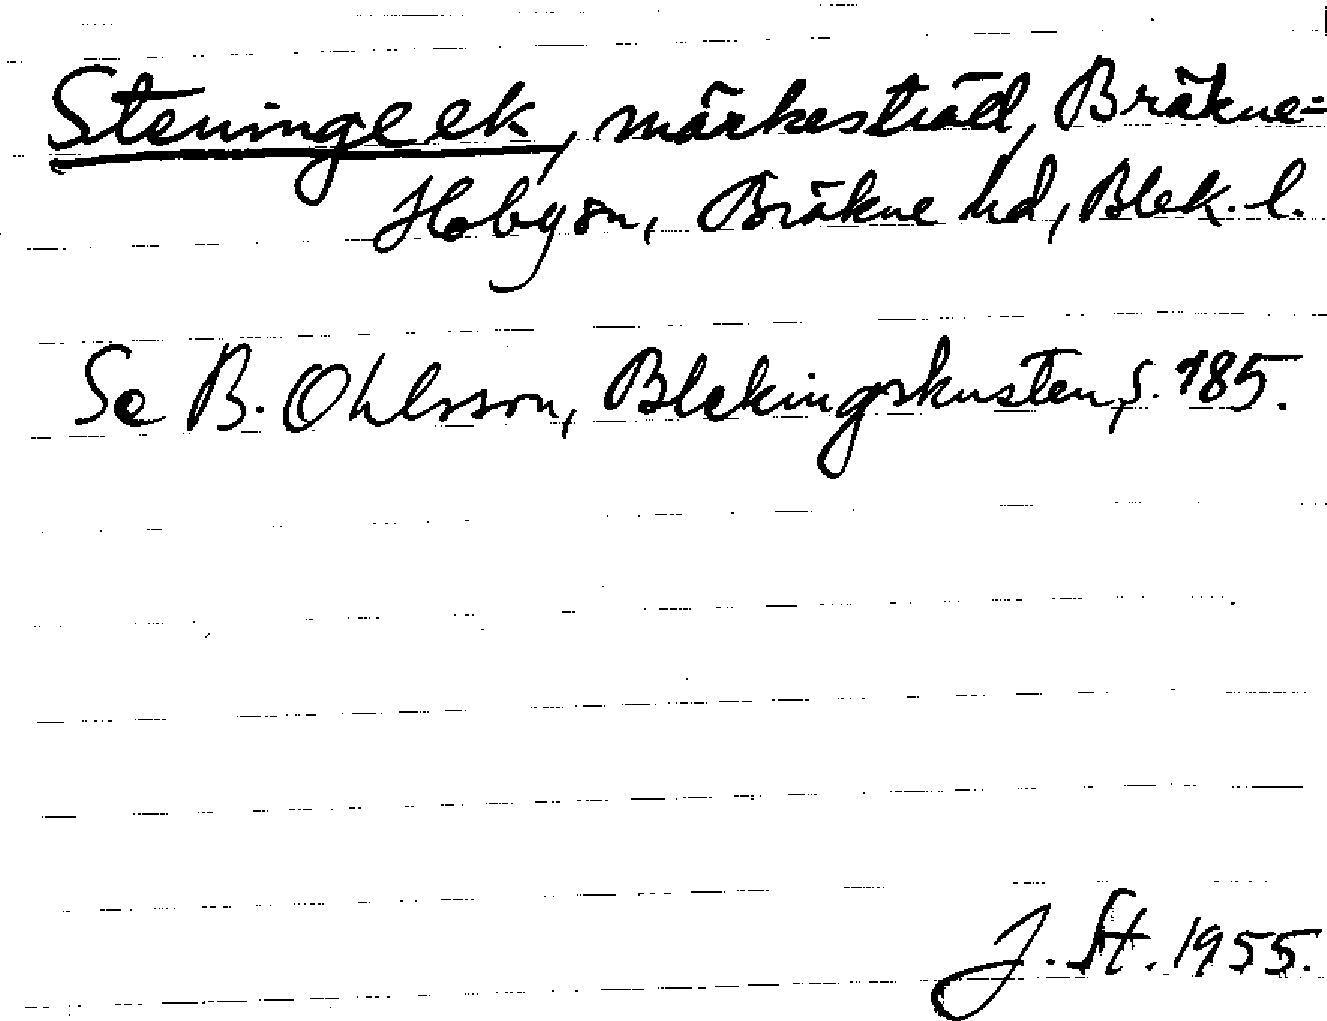 Steningeek, märkesträd, Bräkne=
Hobysn, Bräkne hd, Blek. l.
Se B. Ohlsson, Blekingskusten, s. 185.
J. St. 1955.